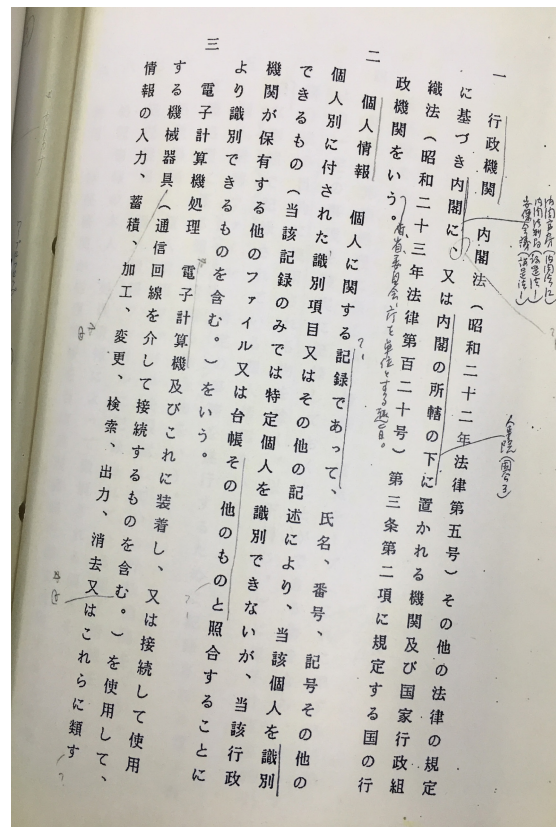 一　行政機関　内閣法（昭和二十二年法律第五号）その他の法律の規定
に基づき内閣に、又は内閣の所轄の下に置かれる機関及び国家行政組
織法（昭和二十三年法律第百二十号）第三条第二項に規定する国の行
政機関をいう。
府、省、委員会、庁を単位とする趣旨。
二　個人情報　個人に関する記録であって、氏名、番号、記号その他の
個人別に付された識別項目又はその他の記述により、当該個人を識別
できるもの（当該記録のみでは特定個人を識別できないが、当該行政
機関が保有する他のファイル又は台帳その他のものと照合することに
より識別できるものを含む。）をいう。
三　電子計算機処理　電子計算機及びこれに装着し、又は接続して使用
する機械器具（通信回線を介して接続するものを含む。）を使用して、
情報の入力、蓄積、加工、変更、検索、出力、消去又はこれらに類す
人事院